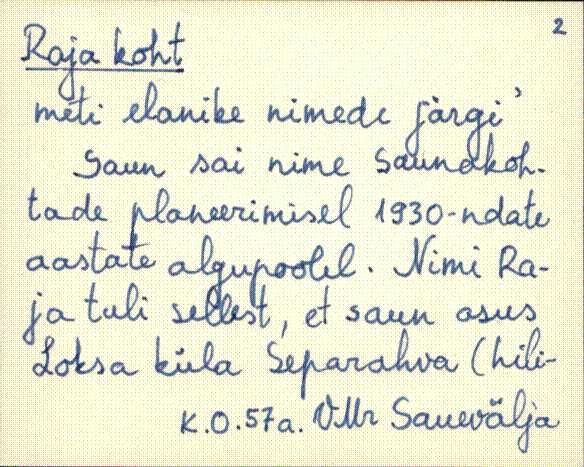 2
Raja koht
meti elanike nimede järgi’
Saun sai nime saunakoh-
tade planeerimisel 1930-ndate
aastate algupoolel. Nimi Ra-
ja tuli sellest, et saun asus
Loksa küla Separahva (hili-
K.O.57a. VMr Sauevälja